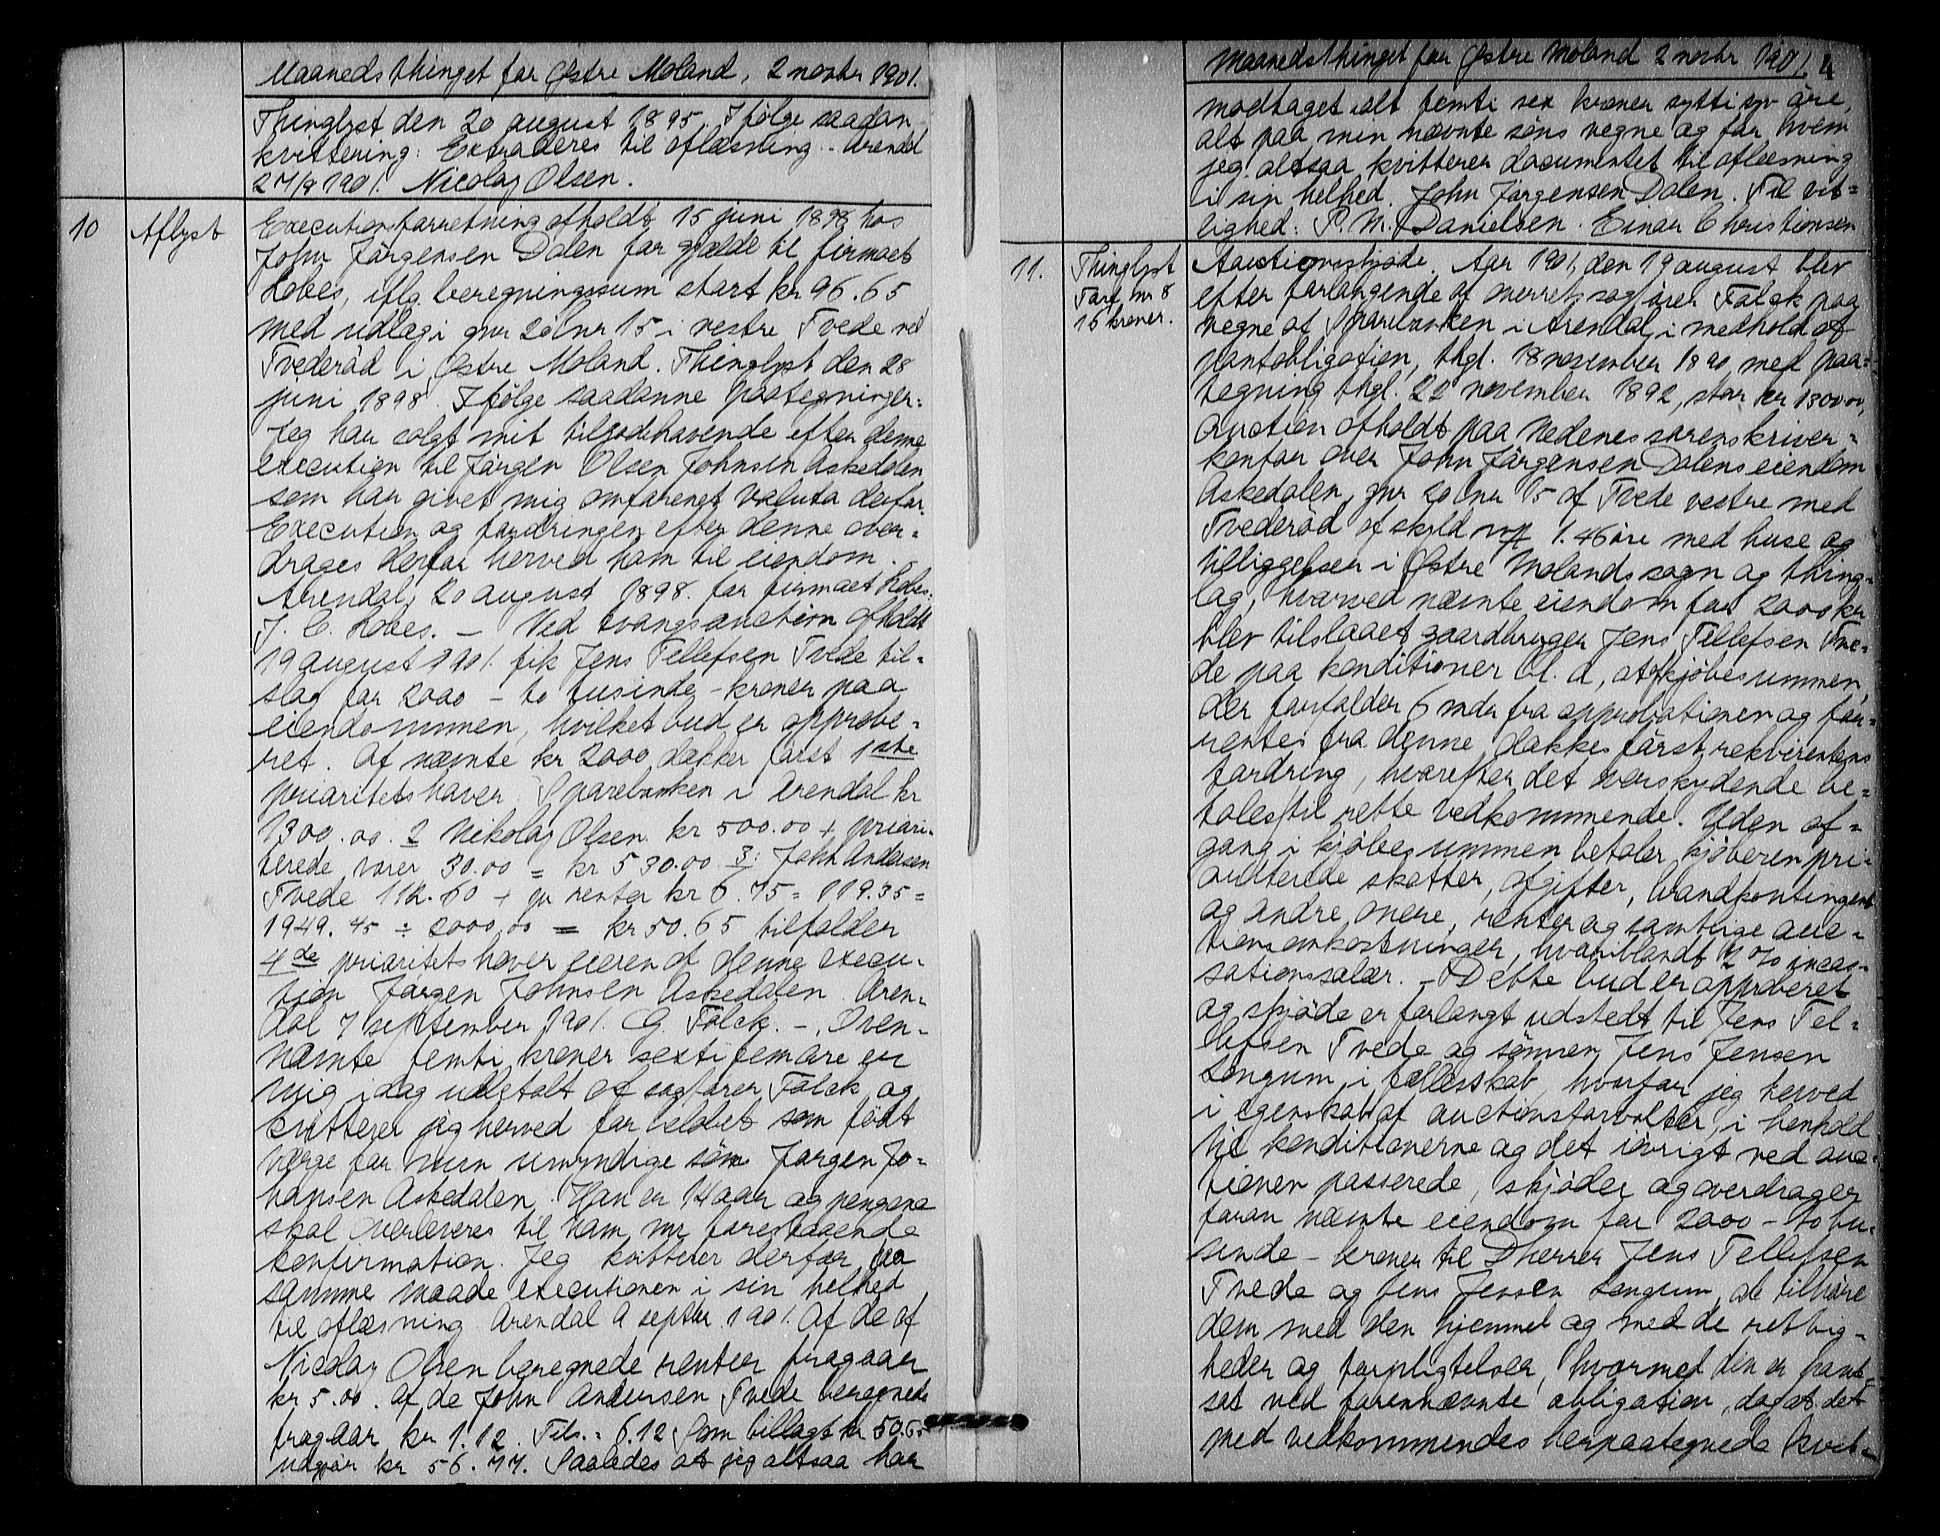 Maanedsthinget for Østre Moland, 2 novbr 1901.
Thinglyst den 20 august 1895. Ifølge saadan
kvittering: Extraderes til aflæsning. Arendal
27/8 1901. Nicolay Olsen.
10 Aflyst Executionsforretning afholdt 15 juni 1898 hos
John Jørgensen Dalen for gjælde til firmaet
Lobes, iflg. beregningssum stort kr 96.65
med udlæg i gnr 20 bnr 15 i vestre Tvede ved
Tvederød i Østre Moland. Thinglyst den 28
juni 1898. Ifølge saadanne paategninger:
Jeg har solgt mit tilgodehavende efter denne
execution til Jørgen Olsen Johnsen Askedalen
som har givet mig omførenet valuta derfor.
Execution og fordringen efter denne over-
drages derfor herved ham til eiendom.
Arendal, 20 august 1898. for firmaet Lobes.
J. C. Lobes. – Ved tvangsauction afholdt
19 august 1901. fik Jens Tellefsen Tvede til-
slag for 2000 – to tusinde – kroner paa
eiendommen, hvilket bud er approbe-
ret. Af nævnte kr 2000 dækker først 1ste
prioritetshaver Sparebanken i Arendal kr
1300.00. 2 Nikolay Olsen kr 500.00 + priori-
terede varer 30.00 = kr 530.00. 3: John Andersen
Tvede 112.60 + pr renter kr 6.75 = 119.35 =
1949.45 ÷ 2000.00 = kr 50.65 tilfalder
4de prioritetshaver eieren af denne execu-
tion Jørgen Johnsen Askedalen. Aren-
dal 7 september 1901. G. Falck. – Oven-
nævnte femti kroner sexti fem øre er
mig idag udbetalt af sagfører Falck og
kvitterer jeg herved for beløbet som født
værge for min umyndige søn Jørgen Jo-
hansen Askedalen. Han er 14 aar og pengene
skal overleveres til ham nu forestaaende
konfirmation. Jeg kvitterer derfor paa
samme maade executionen i sin helhed
til aflæsning. Arendal 9 septbr. 1901. Af de af
Nicolay Olsen beregnede renter fragaar
kr 5.00. af de John Andersen Tvede beregnede
fragaar kr 1.12. Tils. = 6.12 som tillagt kr 50.65
udgjør kr 56.77. Saaledes at jeg altsaa har
Maanedsthinget for Østre Moland 2 novbr 1901. 4
modtaget ialt femti sex kroner sytti syv øre,
alt paa min nævnte søns vegne og for hvem
jeg altsaa kvitterer documentet til aflæsning
i sin helhed. John Jørgensen Dalen. Til vit-
lighed: P. M. Danielsen. Einar Christiansen
11. Thinglyst
Tarf. nr 8
16 kroner.
Auctionsskjøde. Aar 1901, den 19 august blev
efter forlangende af overretssagfører Falck paa
vegne af Sparebanken i Arendal, i medhold af
pantobligation, thgl. 18 november 1890 med paa-
tegning thgl. 22 november 1892, stor kr 1300.00,
auction afholdt paa Nedenes sorenskriver-
kontor over John Jørgensen Dalens eiendom
Askedalen, gnr 20 bnr 15 af Tvede vestre med
Tvederød af skyld mk 1.46 øre med huse og
tilliggelser i Østre Molands sogn og thing-
lag, hvorved nævnte eiendom for 2000 kr
blev tilslaaet gaardbruger Jens Tellefsen Tve-
de paa konditioner bl. a, at kjøbesummen,
der forfalder 6 mdr fra approbationen og for-
rentes fra denne, dækkes først rekvirentens
fordring, hvorefter det overskydende be-
tales til rette vedkommende. Uden af-
gang i kjøbesummen betaler kjøberen pri-
oriterede skatter, afgifter, brandkontingent
og andre onere, renter og samtlige auc-
tionsomkostninger, hvoriblandt 2 % incas-
sationssalær. – Dette bud er approberet
og skjøde er forlangt udstedt til Jens Tel-
lefsen Tvede og sønnen Jens Jensen
Longum i fællesskab, hvorfor jeg herved
i egenskab af auctionsforvalter, i henhold
til konditionerne og det iøvrigt ved auc-
tionen passerede, skjøder og overdrager
foran nævnte eiendom for 2000 – to tu-
sinde – kroner til Dherrer Jens Tellefsen
Tvede og Jens Jensen Longum, at tilhøre
dem med den hjemmel og med de rettig-
heder og forpligtelser, hvormed den er pant-
sat ved forennævnte obligation, dog at det
med vedkommendes herpaategnede kvit-